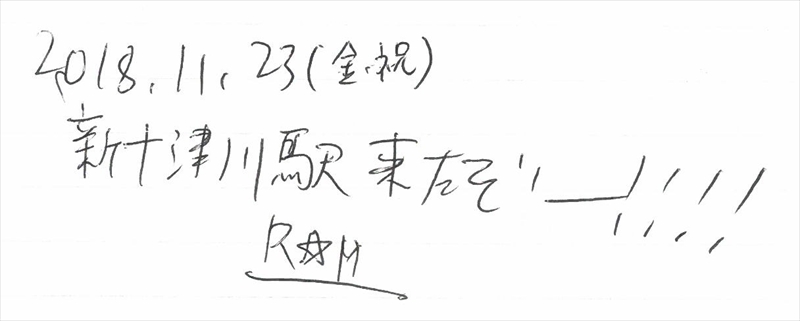 2018.11.23(金・祝)
新十津川駅 来たぞりー!!!!
R☆H